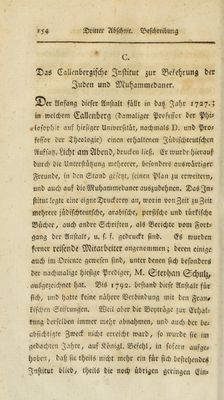 154 Dritter Abschnitt. Beschreibung
C.
Das Callenbergische Institut zur Bekehrung der
Juden und Muhammedaner.
Der Anfang dieser Anstalt fällt in das Jahr 1727,
in welchem Callenberg (damaliger Professor der Phi-
losophie auf hiesiger Universität, nachmals D. und Pro-
fessor der Theologie) einen erhaltenen Jüdischteutschen
Aufsatz, Licht am Abend, drucken ließ. Er wurde hierauf
durch die Unterstützung mehrerer, besonders auswärtiger
Freunde, in den Stand gesetzt, seinen Plan zu erweitern,
und auch auf die Muhammedaner auszudehnen. Das In-
stitut legte eine eigne Druckerey an, worin von Zeit zu Zeit
mehrere jüdischteutsche, arabische, persische und türkische
Bücher, auch andre Schriften, als Berichte vom Fort-
gang der Anstalt, u. s. f. gedruckt sind. Es wurden
ferner reisende Mitarbeiter angenommen; deren einige
auch im Oriente gewesen sind, unter denen sich besonders
der nachmalige hiesige Prediger, M. Stephan Schulz,
ausgezeichnet hat. Bis 1792. bestand diese Anstalt für
sich, und hatte keine nähere Verbindung mit den Fran-
kischen Stiftungen. Weil aber die Beyträge zur Erhal-
tung derselben immer mehr abnahmen, und auch der be-
absichtigte Zweck nicht erreicht ward, so wurde sie im
gedachten Jahre, auf Königl. Befehl, in sofern aufge-
hoben, daß sie theils nicht mehr ein für sich bestehendes
Institut blieb, theils die noch übrigen geringen Ein-